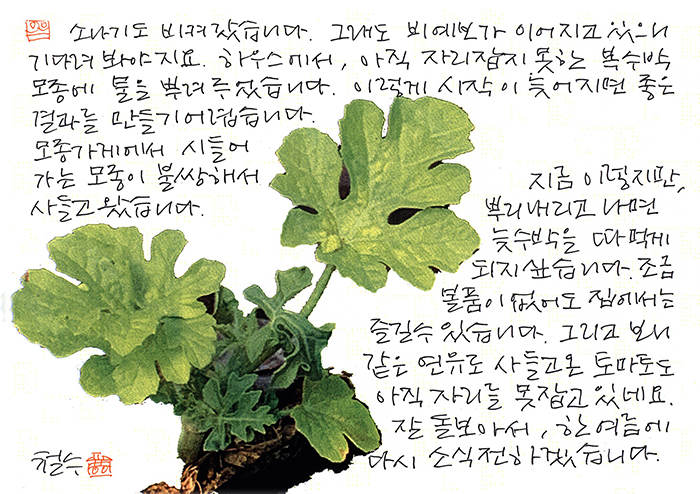 소나기도 비켜 갔습니다. 그래도 비예보가 이어지고 있으니
기다려 봐야지요. 하우스에서, 아직 자리잡지 못한 복수박
모종에 물을 뿌려 주었습니다. 이렇게 시작이 늦어지면 좋은
결과를 만들기 어렵습니다.
모종가게에서 시들어
가는 모종이 불쌍해서
사들고 왔습니다.
지금 이렇지만,
뿌리내리고 나면
늦수박을 따먹게
되지 싶습니다. 조금
볼품이 없어도 집에서는
즐길 수 있습니다. 그리고 보니
같은 연유로 사들고 온 토마토도
아직 자리를 못잡고 있네요.
잘 돌보아서, 한여름에
다시 소식전하겠습니다.
철수